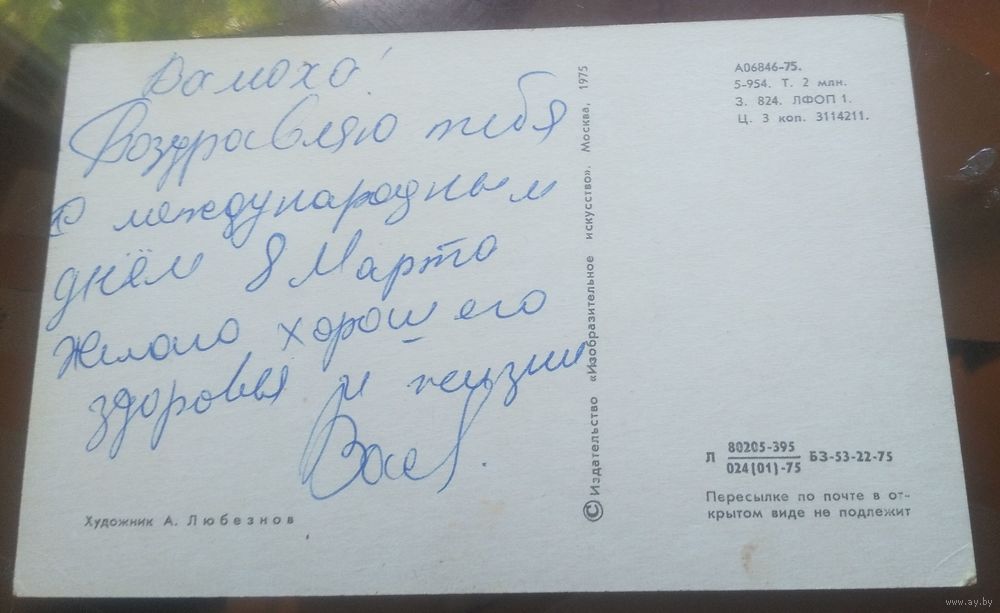 Поздравляю тебя
с международным
днём 8 Марта
Желаю хорошего
здоровья и жизни
Художник А. Любезнов
© Издательство «Изобразительное искусство». Москва, 1975
А06846-75.
5-954. Т. 2 млн.
З. 824. ЛФОП 1.
Ц. 3 коп. 3114211.
Л 80205-395 БЗ-53-22-75
024(01)-75
Пересылке по почте в от-
крытом виде не подлежит
www.ay.by